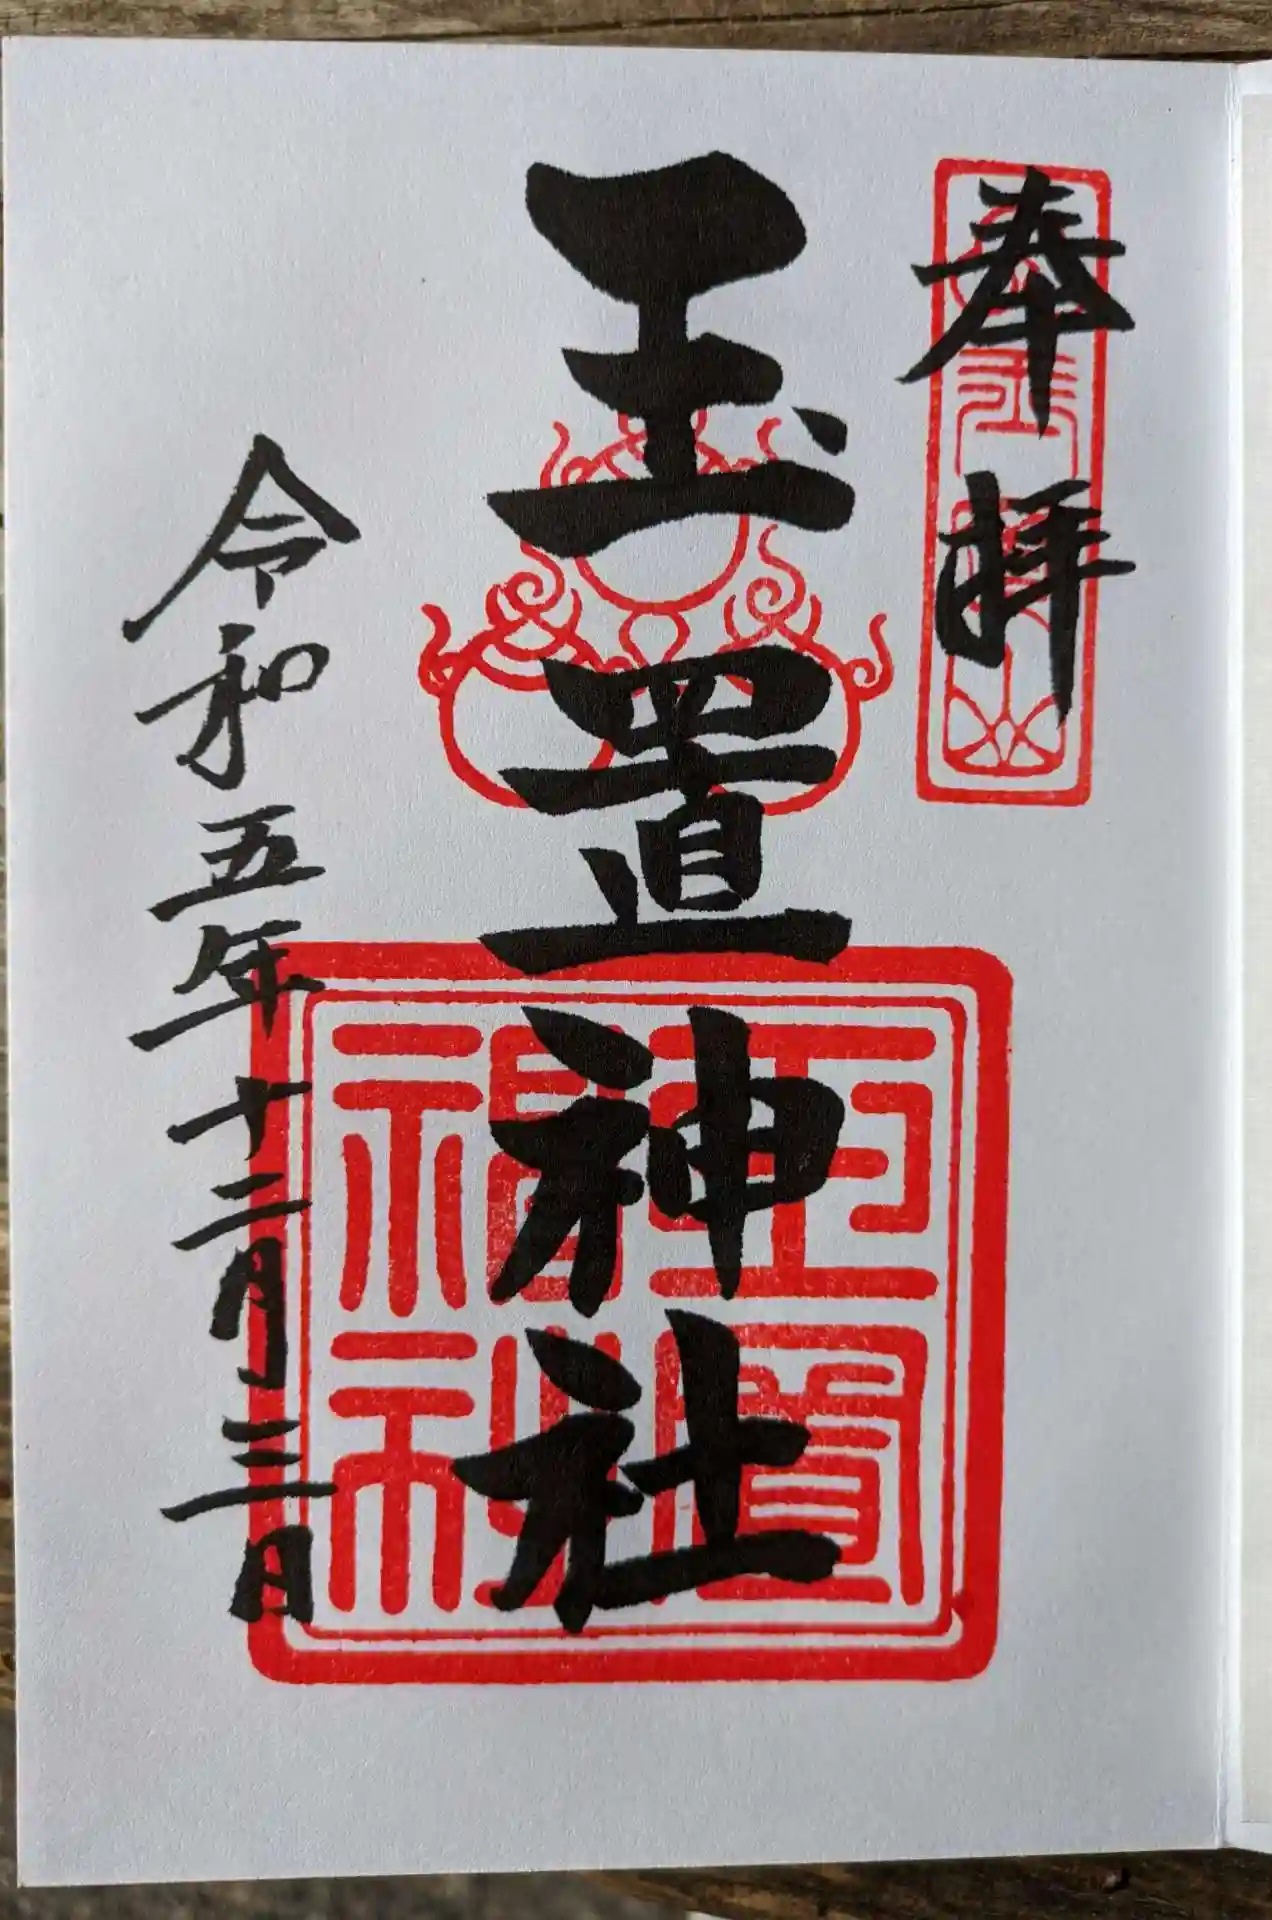 奉拝
玉置神社
令和五年十二月三日
玉置神社